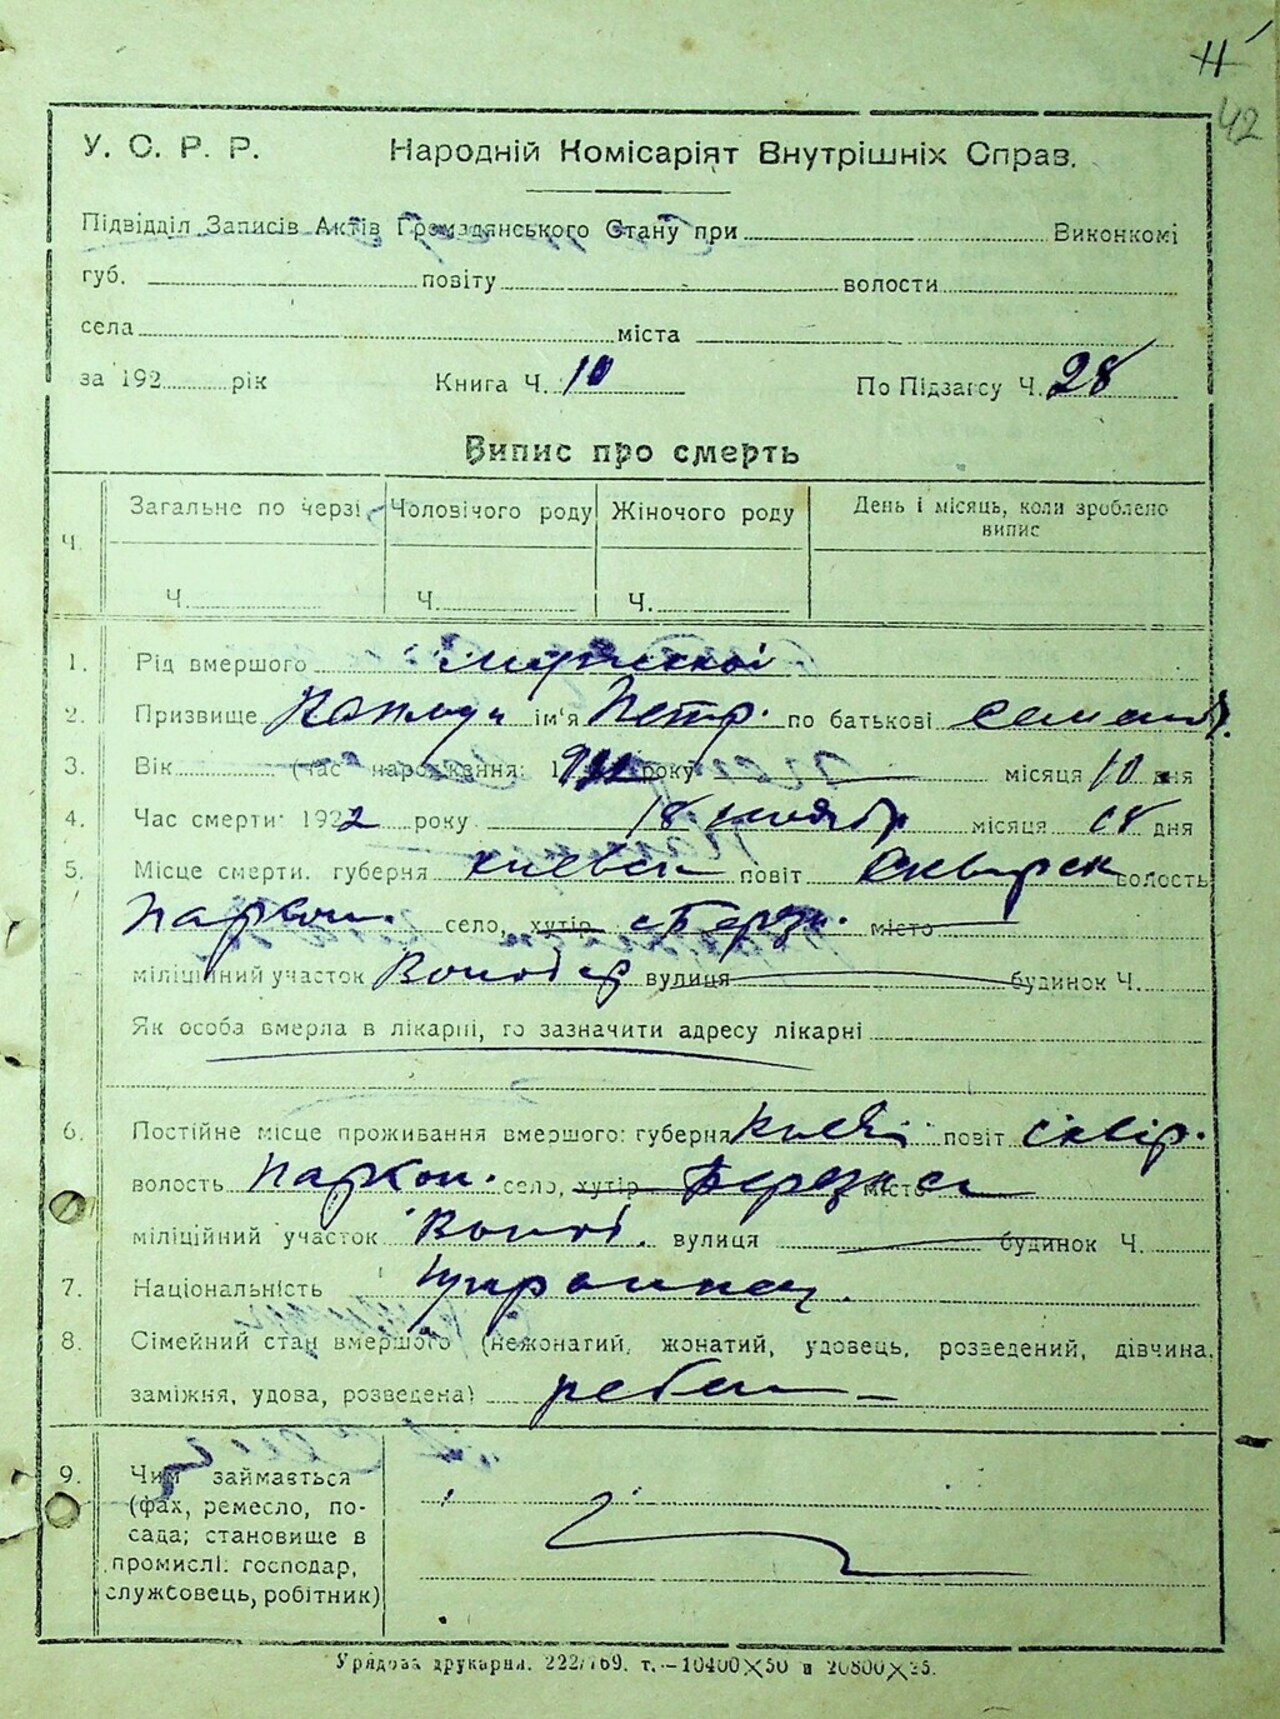 42
У. С. Р. Р. Народній Комісаріят Внутрішніх Справ.
Підвідділ Записів Актів Громадянського Стану при Виконкомі
губ. повіту волости
села міста
за 192 рік Книга Ч. 10 По Підзагсу Ч. 28
Випис про смерть
Ч. Загальне по черзі Чоловічого роду Жіночого роду День і місяць, коли зроблено випис
Ч. Ч. Ч.
1. Рід вмершого мужской
2. Призвище ім'я Петр. по батькові
3. Вік (час народження: 1 року місяця 10 дня
4. Час смерти: 1922 року 18 ноябр місяця 18 дня
5. Місце смерти. губерня киевск повіт Сквирск волость
Паркон. село, хутір с Берез. місто
міліційний участок Волод вулиця будинок Ч.
Як особа вмерла в лікарні, го зазначити адресу лікарні
6. Постійне місце проживання вмершого: губерня Київ повіт сквір.
волость Паркон. село, хутір Березна місто
міліційний участок Волод. вулиця будинок Ч.
7. Національність Украинец.
8. Сімейний стан вмершого (нежонатий, жонатий, удовець, розведений, дівчина,
заміжня, удова, розведена) ребен
9. Чим займається
(фах, ремесло, по-
сада; становище в
промислі: господар,
службовець, робітник)
Урядова друкарня. 222/769. т.—10400×50 и 20800×25.